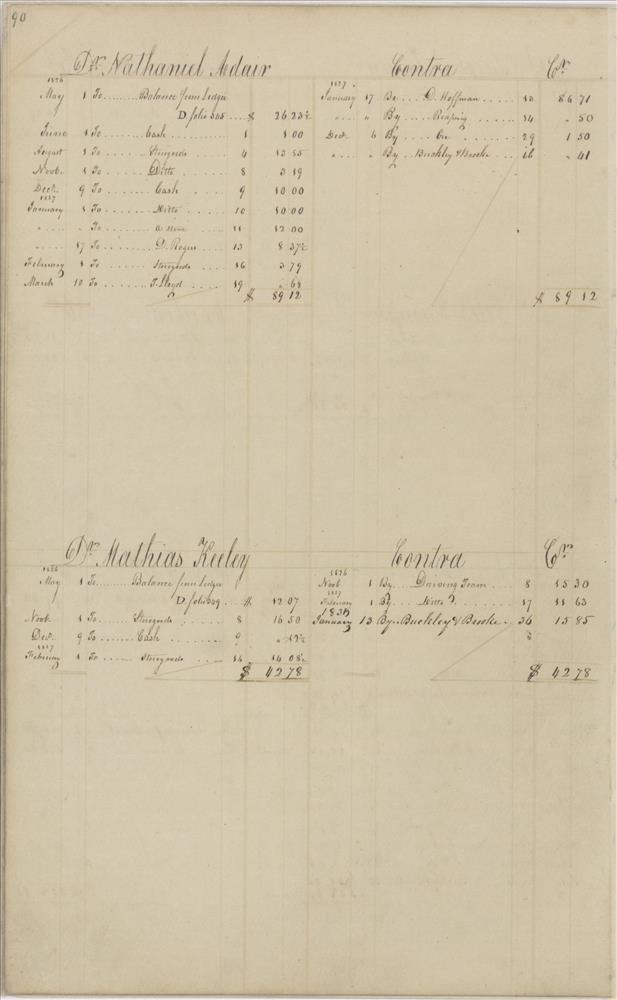 90
Dr. Nathaniel Adair
1836
May 1 To Balance from Ledger
D folio 305 $ 26 23½
June 1 To Cash 1 1 00
August 1 To 4 13 55
Novb. 1 To Ditto 8 3 19
Decb. 9 To Cash 9 10 00
1837
January 1 To Ditto 10 10 00
" " To 11 12 00
" 17 To D. Rogers 13 8 37½
February 1 To 16 3 79
March 10 To T. Lloyd 19 " 68
$ 89 12
Contra Cr.
1837
January 17 By D. Hoffman 13 86 71
" " By Reaping 14 " 50
Decb. 6 By 29 1 50
" " By Buckley & Brooke 16 " 41
$ 89 12
Dr. Mathias Keeley
1836
May 1 To Balance from Ledger
D folio 339 $ 12 07
Novb. 1 To 8 16 50
Decb. 9 To Cash 9 " 12½
1837
February 1 To 16 14 08½
$ 42 78
Contra Cr.
1836
Novb. 1 By Driving Team 8 15 30
1837
February 1 By Ditto 17 11 63
1838
January 13 By Buckley & Brooke 36 15 85
$ 42 78